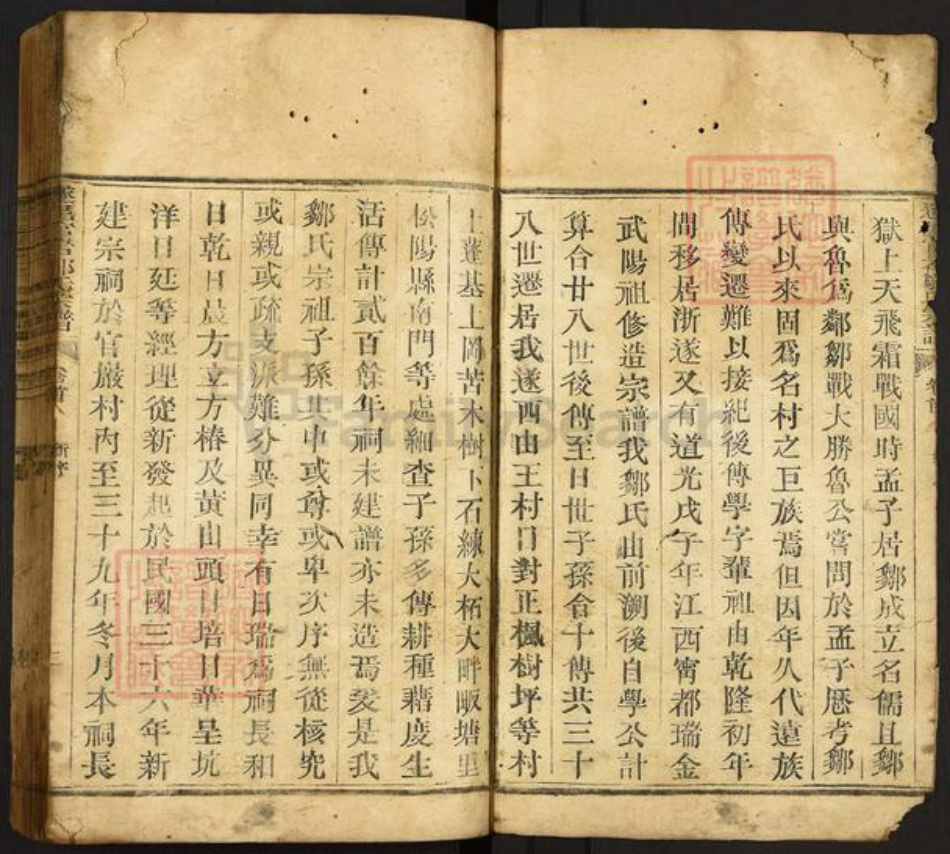 獄上天飛霜戰國時孟子居鄒成立名儒且鄒
與魯爲鄰鄒戰大勝魯公嘗問於孟子歷考鄒
氏以來固爲名村之巨族焉但因年久代遠族
傳變遷難以接紀後傳學字輩祖由乾隆初年
間移居浙遂又有道光戊午年江西甯都瑞金
武陽祖修造宗譜我鄒氏由前溯後自學公計
算合廿八世後傳至日世子孫合十傳共三十
八世遷居我遂西由王村口對正楓樹坪等村
上蓬基上岡苦木樹下石練大柘大畔畈塘里
松陽縣南門等處細查子孫多傳耕種藉度生
活傳計貳百餘年祠未建譜亦未造焉爰是我
鄒氏宗祖子孫其中或尊或卑次序無從核究
或親或疏支派難分異同幸有日瑞爲祠長和
日乾日晨方立方椿及黄山頭日培日華呈坑
洋日廷等經理從新發起於民國三十六年新
建宗祠於官嚴村內至三十九年冬月本祠長